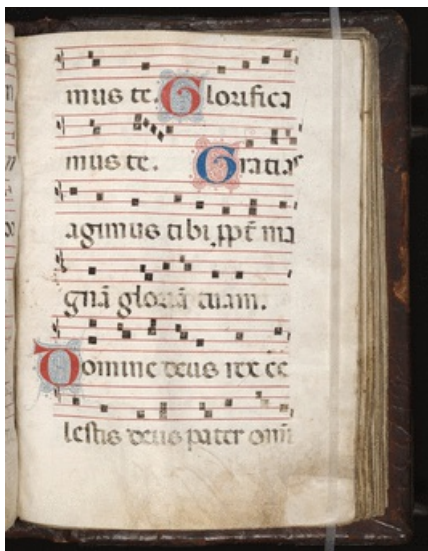 mus te. Glorifica
mus te. Gratias
agimus tibi ꝓpt̄ ma
gnā gloriā tuam.
Domine deus rex ce
lestis deus pater om̄i